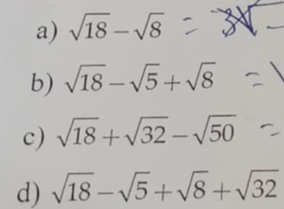 a) √18 − √8 =
b) √18 − √5 + √8 =
c) √18 + √32 − √50 =
d) √18 − √5 + √8 + √32